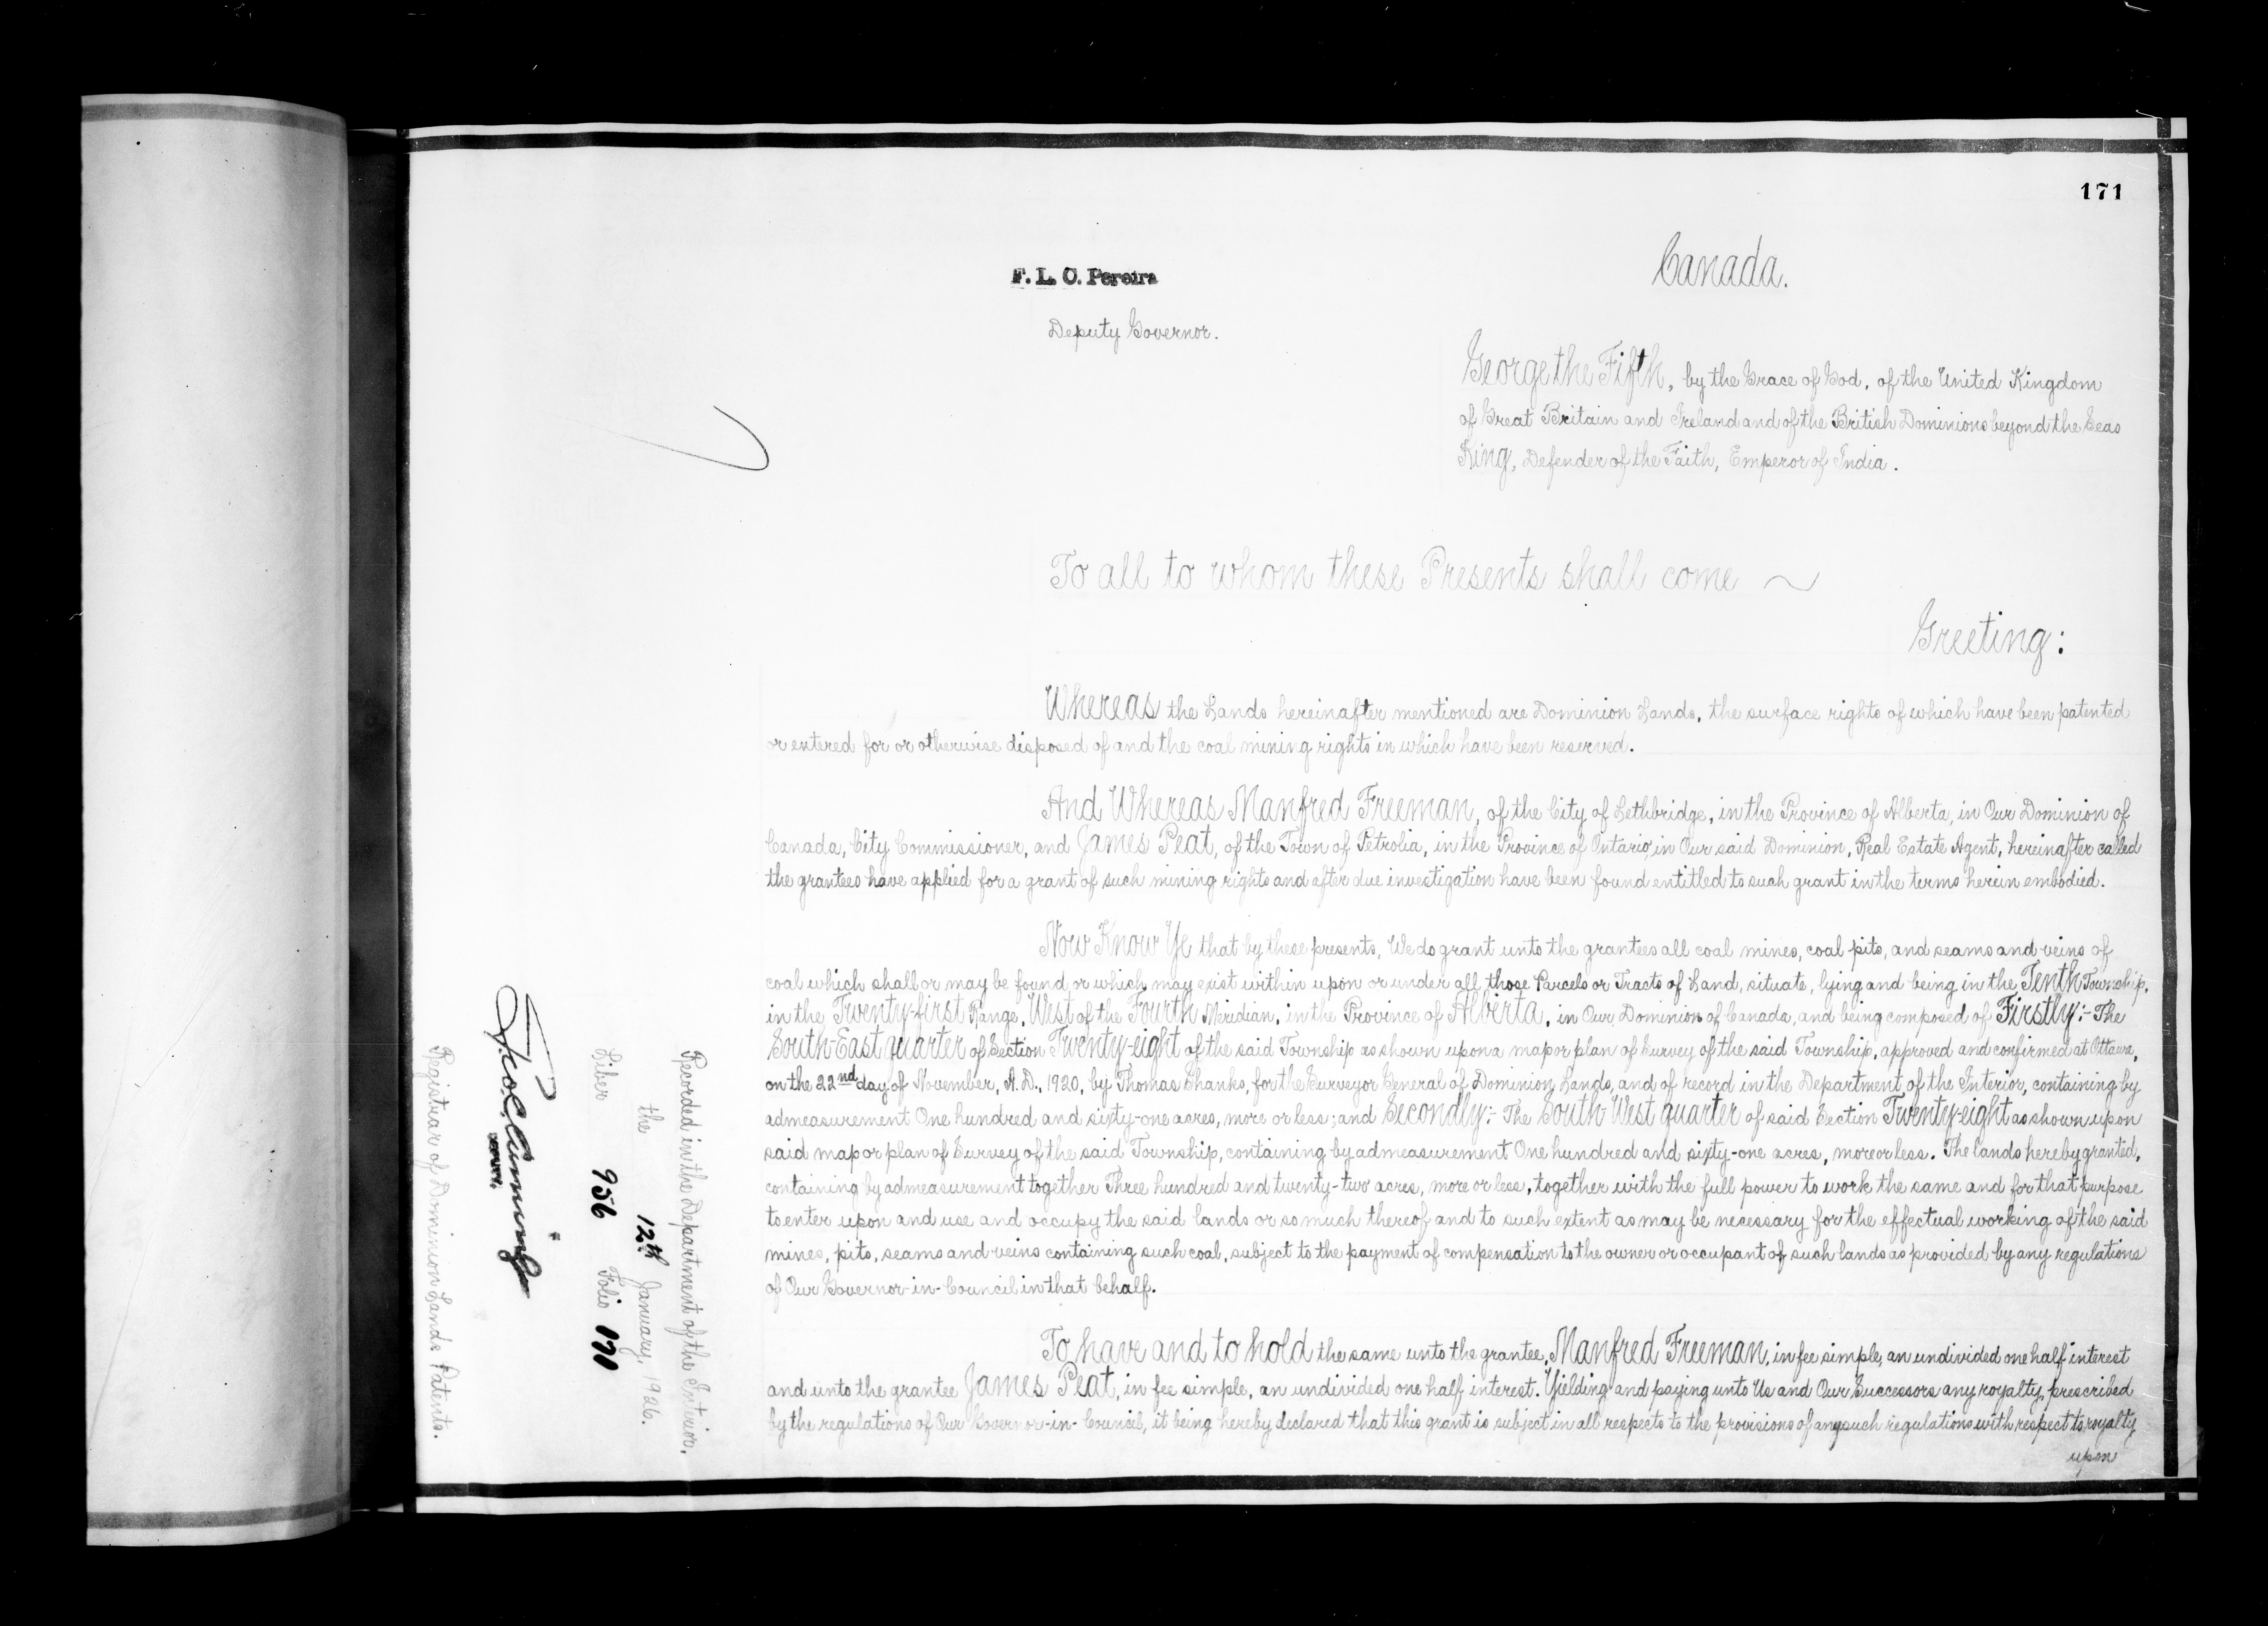 171
Canada.
F. L. C. Pereira
Deputy Governor.
George the Fifth, by the Grace of God, of the United Kingdom
of Great Britain and Ireland and of the British Dominions beyond the Seas
King, Defender of the Faith, Emperor of India.
To all to whom these Presents shall come
Greeting:
Whereas the Lands hereinafter mentioned are Dominion Lands, the surface rights of which have been patented
or entered for or otherwise disposed of and the coal mining rights in which have been reserved.
And Whereas Manfred Freeman, of the City of Lethbridge, in the Province of Alberta, in Our Dominion of
Canada, City Commissioner, and James Peat, of the Town of Petrolia, in the Province of Ontario, in Our said Dominion, Real Estate Agent, hereinafter called
the grantees have applied for a grant of such mining rights and after due investigation have been found entitled to such grant in the terms herein embodied.
Now Know Ye that by these presents, We do grant unto the grantees all coal mines, coal pits, and seams and veins of
coal which shall or may be found or which may exist within upon or under all those Parcels or Tracts of Land, situate, lying and being in the Tenth Township,
in the Twenty-first Range, West of the Fourth Meridian, in the Province of Alberta, in Our Dominion of Canada, and being composed of Firstly:- The
South-East quarter of Section Twenty-eight of the said Township as shown upon a map or plan of Survey of the said Township, approved and confirmed at Ottawa,
on the 22nd day of November, A.D., 1920, by Thomas Shanks, for the Surveyor General of Dominion Lands, and of record in the Department of the Interior, containing by
admeasurement One hundred and sixty-one acres, more or less; and Secondly:- The South-West quarter of said Section Twenty-eight as shown upon
said map or plan of Survey of the said Township, containing by admeasurement One hundred and sixty-one acres, more or less. The lands hereby granted,
containing by admeasurement together Three hundred and twenty-two acres, more or less, together with the full power to work the same and for that purpose
to enter upon and use and occupy the said lands or so much thereof and to such extent as may be necessary for the effectual working of the said
mines, pits, seams and veins containing such coal, subject to the payment of compensation to the owner or occupant of such lands as provided by any regulations
of Our Governor-in-Council in that behalf.
To have and to hold the same unto the grantee, Manfred Freeman, in fee simple, an undivided one half interest
and unto the grantee James Peat, in fee simple, an undivided one half interest. Yielding and paying unto Us and Our Successors any royalty, prescribed
by the regulations of Our Governor-in-Council, it being hereby declared that this grant is subject in all respects to the provisions of any such regulations with respect to royalty
upon
Recorded in the Department of the Interior,
the 12th January, 1926.
Liber 956 Folio 171
Registrar of Dominion Lands Patents.